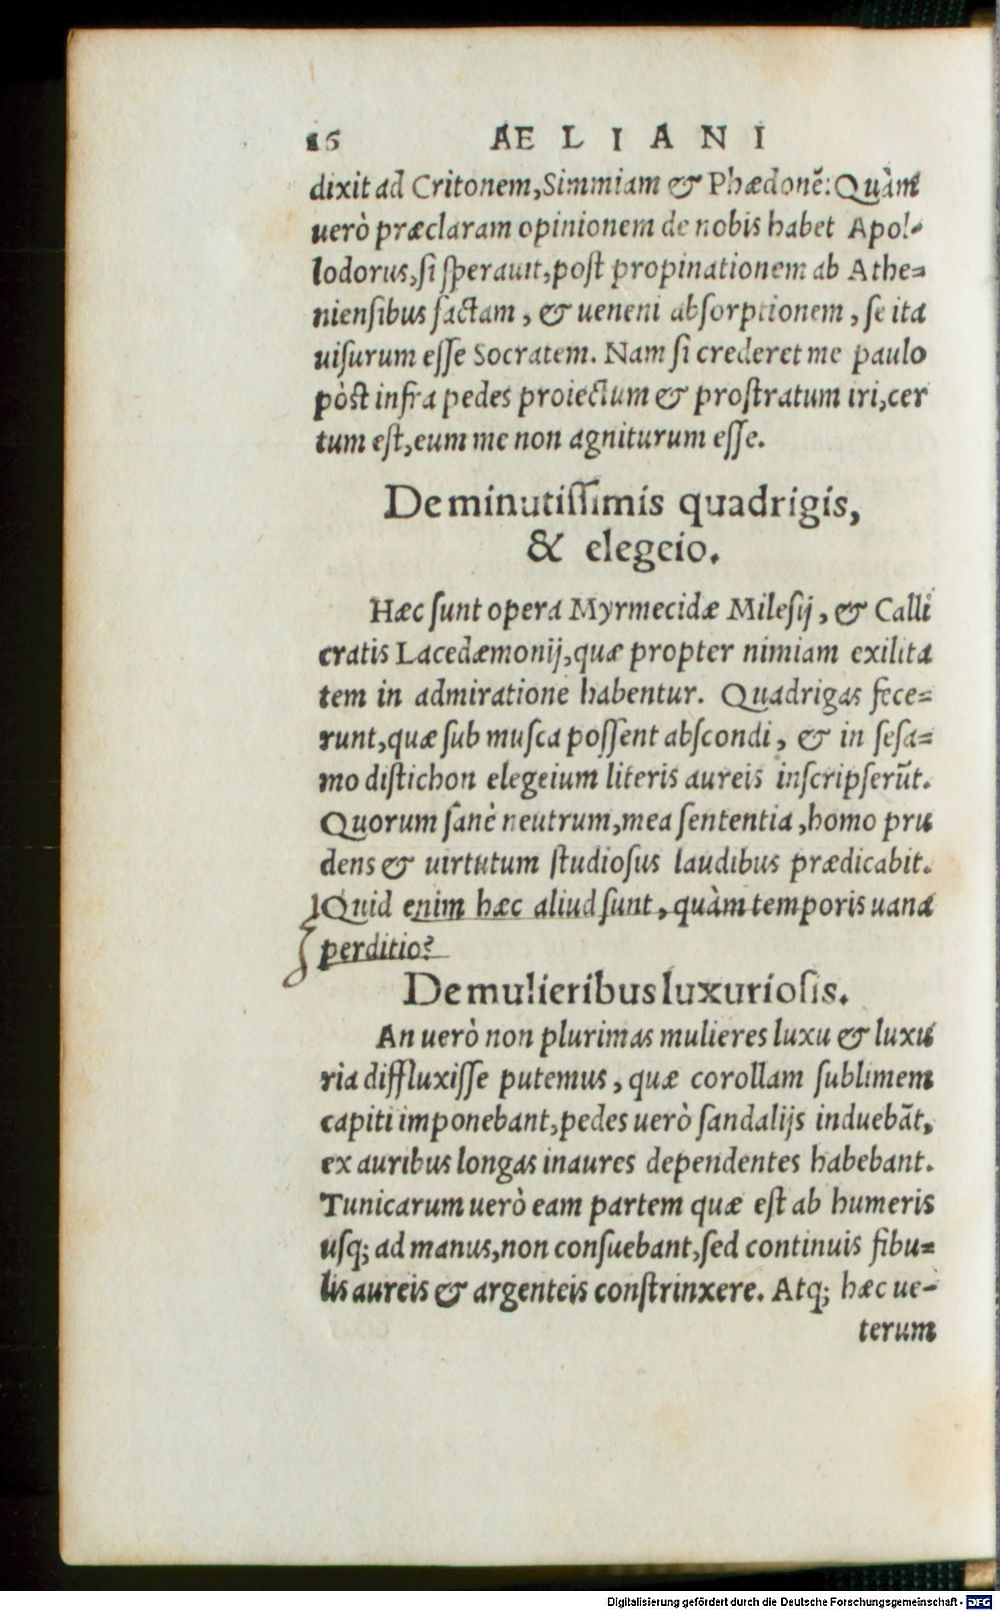 16 AELIANI
dixit ad Critonem, Simmiam & Phædonẽ: Quàm
uerò præclaram opinionem de nobis habet Apol-
lodorus, si sperauit, post propinationem ab Athe-
niensibus factam, & ueneni absorptionem, se ita
uisurum esse Socratem. Nam si crederet me paulo
pòst infra pedes proiectum & prostratum iri, cer
tum est, eum me non agniturum esse.
De minutissimis quadrigis,
& elegeio.
Hæc sunt opera Myrmecidæ Milesij, & Calli
cratis Lacedæmonij, quæ propter nimiam exilita
tem in admiratione habentur. Quadrigas fece-
runt, quæ sub musca possent abscondi, & in sesa-
mo distichon elegeium literis aureis inscripserũt.
Quorum sanè neutrum, mea sententia, homo pru
dens & uirtutum studiosus laudibus prædicabit.
Quid enim hæc aliud sunt, quàm temporis uana
perditio?
De mulieribus luxuriosis.
An uerò non plurimas mulieres luxu & luxu
ria diffluxisse putemus, quæ corollam sublimem
capiti imponebant, pedes uerò sandalijs induebãt,
ex auribus longas inaures dependentes habebant.
Tunicarum uerò eam partem quæ est ab humeris
usq; ad manus, non consuebant, sed continuis fibu-
lis aureis & argenteis constrinxere. Atq; hæc ue-
terum
Digitalisierung gefördert durch die Deutsche Forschungsgemeinschaft - DFG